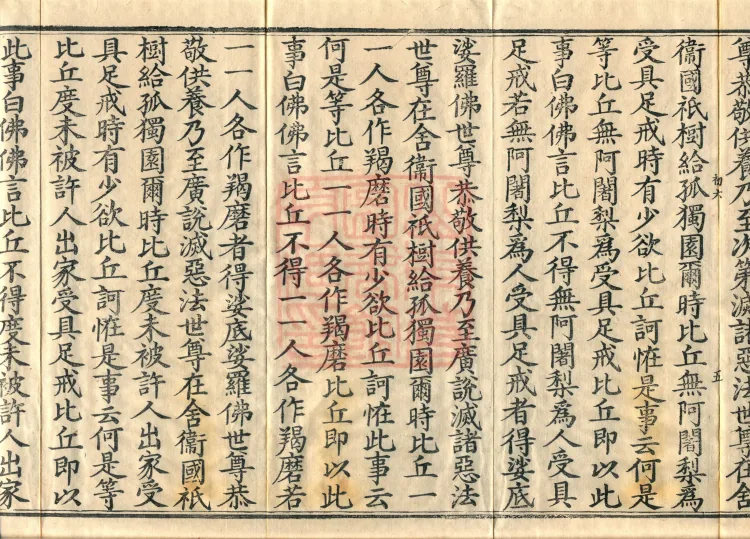 尊恭敬供養乃至次第滅諸惡法世尊在舍
五
衞國祇樹給孤獨園爾時比丘無阿闍梨爲
受具足戒時有少欲比丘訶恠是事云何是
等比丘無阿闍梨爲受具足戒比丘即以此
事白佛佛言比丘不得無阿闍梨爲人受具
足戒若無阿闍梨爲人受具足戒者得娑底
娑羅佛世尊恭敬供養乃至廣說滅諸惡法
世尊在舍衞國祇樹給孤獨園爾時比丘一
一人各作羯磨時有少欲比丘訶恠此事云
何是等比丘一一人各作羯磨比丘即以此
事白佛佛言比丘不得一一人各作羯磨若
一一人各作羯磨者得娑底娑羅佛世尊恭
敬供養乃至廣說滅惡法世尊在舍衞國祇
樹給孤獨園爾時比丘度未被許人出家受
具足戒時有少欲比丘訶恠是事云何是等
比丘度未被許人出家受具足戒比丘即以
此事白佛佛言比丘不得度未被許人出家